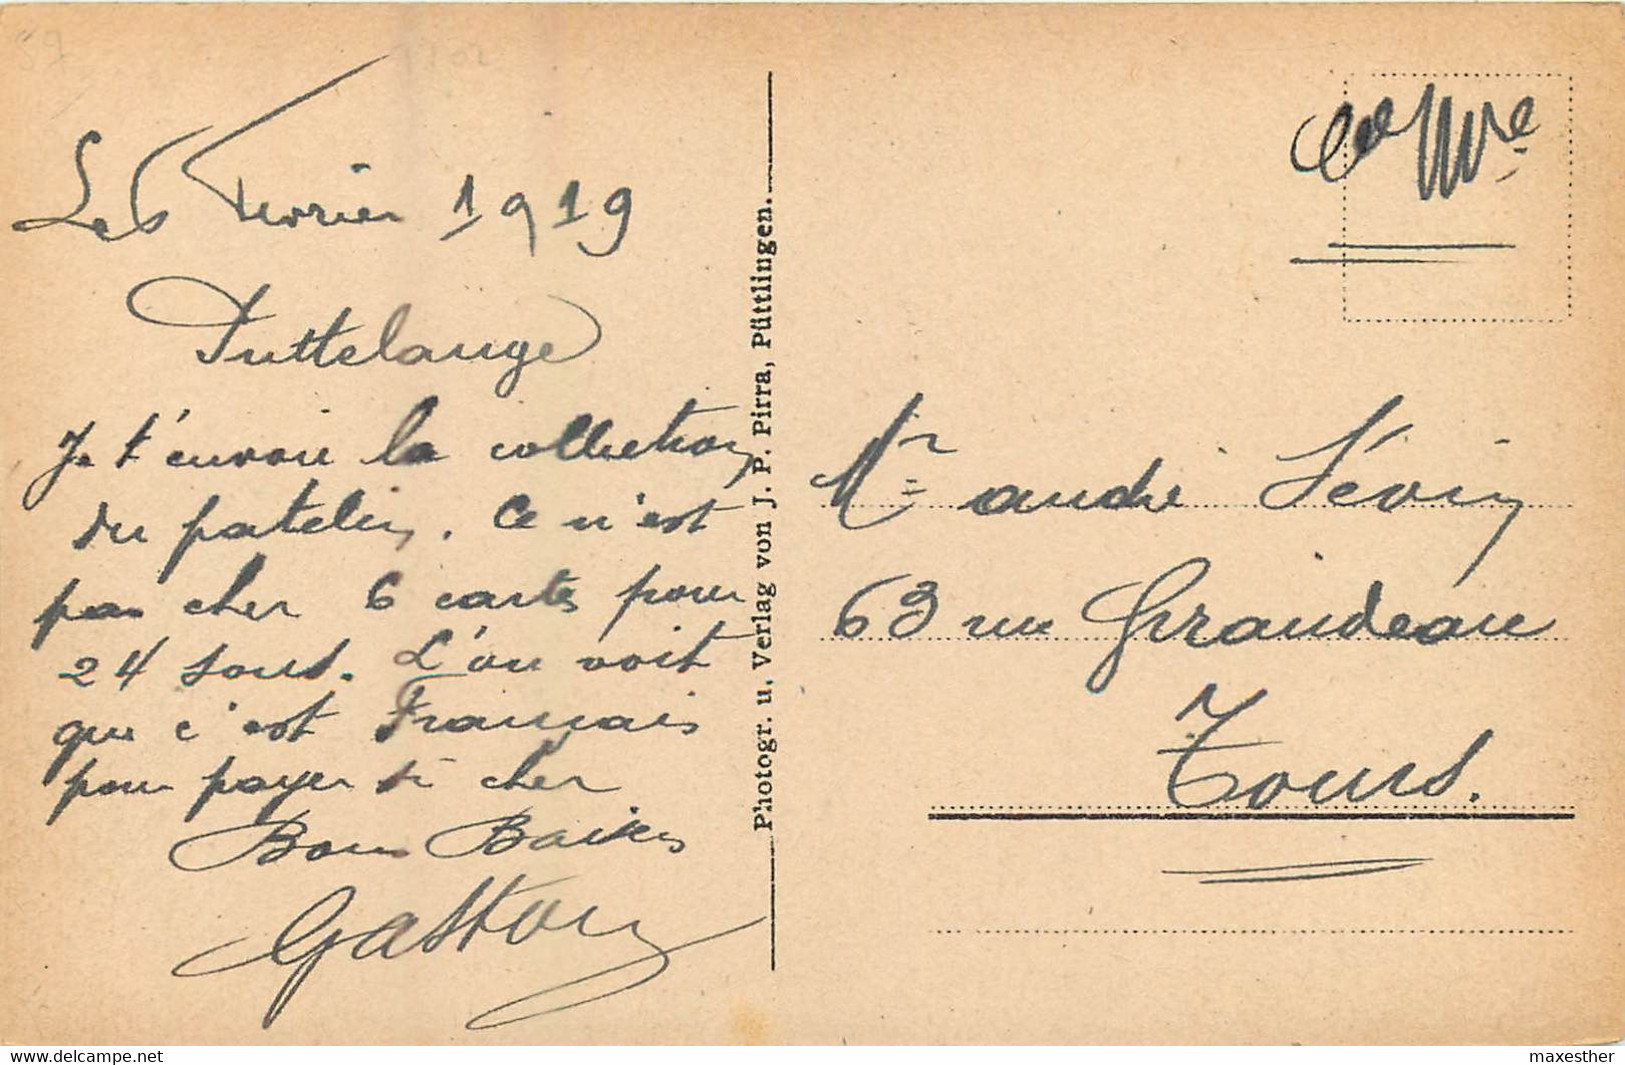 Le 6 Fevrier 1919
Puttelange
Je t'envoie la collection
du patelin. Ce n'est
pas cher 6 cartes pour
24 sous. L'on voit
que c'est Francais
pour payer si cher
Bons Baisers
Gaston
Photogr. u. Verlag von J. P. Pirra, Püttlingen.
Mr andré Sévin
63 rue Girandeau
Tours.
delcampe.net
maxesther